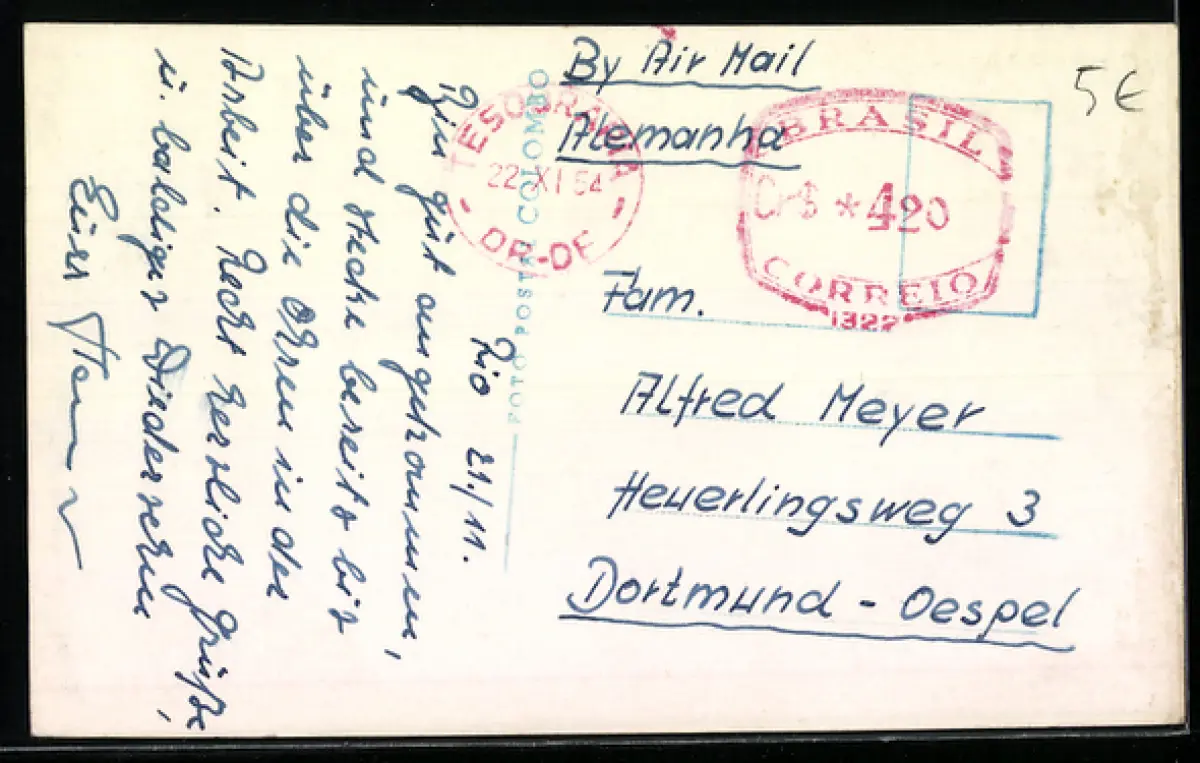 Rio 21./11.
Bin gut angekommen,
und stecke bereits bis
über die Ohren in der
Arbeit. Recht herzliche Grüße,
u. baldiges Wiedersehen
Euer
By Air Mail
Alemanha
22 XI 54
DR-DF
BRASIL
Cr$ *4,20
CORREIO
1322
5€
FOTO POSTAL COLOMBO
Fam.
Alfred Meyer
Heuerlingsweg 3
Dortmund - Oespel